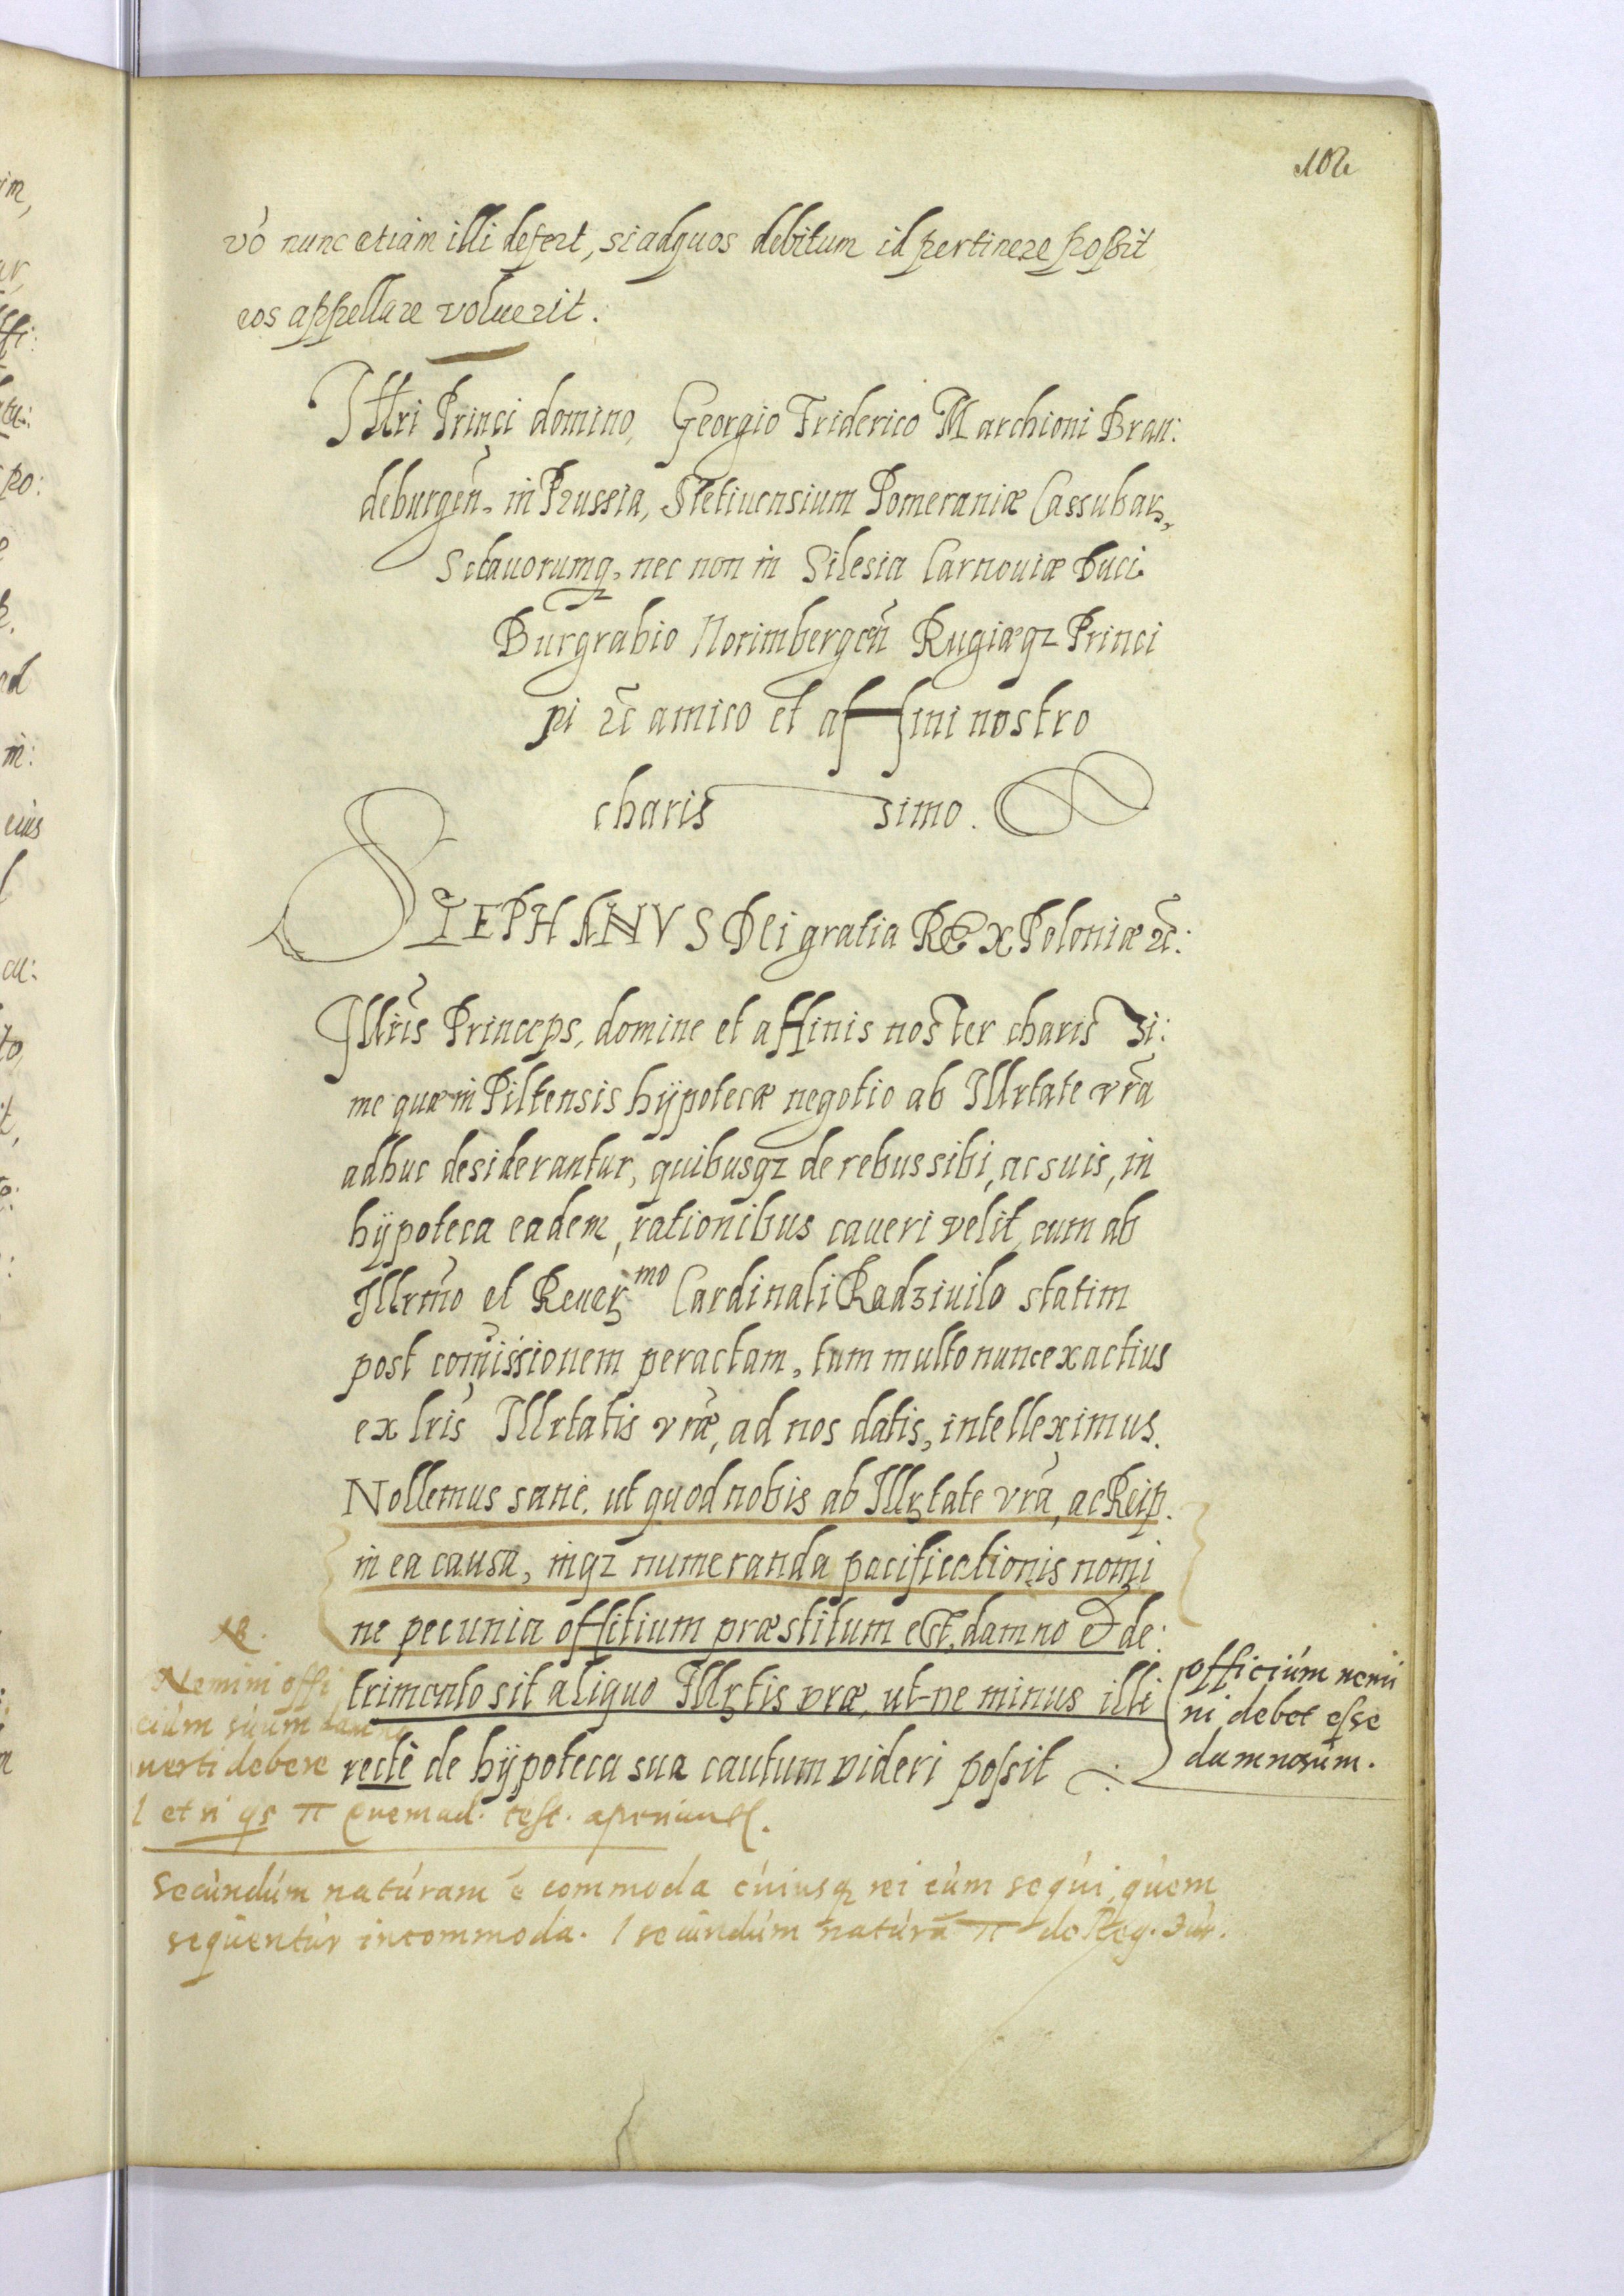 102
vó nunc etiam illi defert, si ad quos debitum id pertinere possit
eos appellare voluerit.
Illri Princi domino, Georgio Friderico Marchioni Bran:
deburgeñ. in Prussia, Stetinensium Pomeraniæ Cassubarꝫ,
Sclauorumq, nec non in Silesia Carnouiæ Duci
Burgrabio Norimbergeñ Rugiæqz Princi
pi ꝛc amico et affini nostro
charis simo.
STEPHANVS DEi gratia REX Poloniæ ꝛc:
Illris Princeps, domine et affinis noster charis si:
me quæ in Piltensis hÿpotecæ negotio ab Illrtate vrã
adhuc desiderantur, quibusqz de rebus sibi, ac suis, in
hÿpoteca eadem, rationibus caueri velit, cum ab
Illrmo et Reuerꝫmo Cardinali Radziuilo statim
post comissionem peractam, tum multo nunc exactius
ex lris Illrtatis vræ, ad nos datis, intelleximus.
Nollemus sane. ut quod nobis ab Illrtate vrã, ac Reip.
in ea causa, inqz numeranda pacificationis nomi
ne pecunia offitium præstitum est, damno & de:
trimento sit aliquo Illrtis vræ, ut ne minus illi
rectè de hÿpoteca sua cautum videri possit
officiúm nemi
ni debet esse
damnosúm.
Nemini offi
ciúm súúm damno
uerti debere
l et si qs π quemad. test. aperiant.
secúndúm natúram ẽ commoda cúiusq rei eúm seqúi, qúem
seqúentúr incommoda. l secúndúm natúrã π de Reg. Júr.